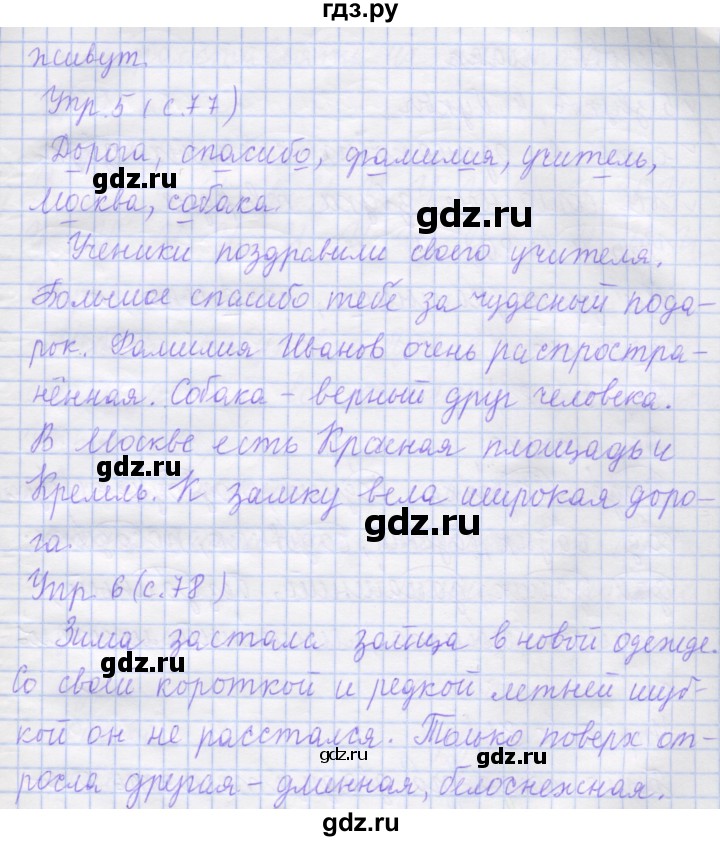 гдз.ру
живут.
Упр. 5 (с. 77)
Дорога, спасибо, фамилия, учитель,
gdz.ru
Москва, собака.
gdz.ru
Ученики поздравили своего учителя.
Большое спасибо тебе за чудесный пода-
рок. Фамилия Иванов очень распростра-
нённая. Собака – верный друг человека.
В Москве есть Красная площадь и
gdz.ru
Кремль. К замку вела широкая доро-
gdz.ru
га.
Упр. 6 (с. 78)
Зима застала зайца в новой одежде.
gdz.ru
Со своей короткой и редкой летней шуб-
кой он не расстался. Только поверх от-
gdz.ru
gdz.ru
росла другая – длинная, белоснежная.
gdz.ru